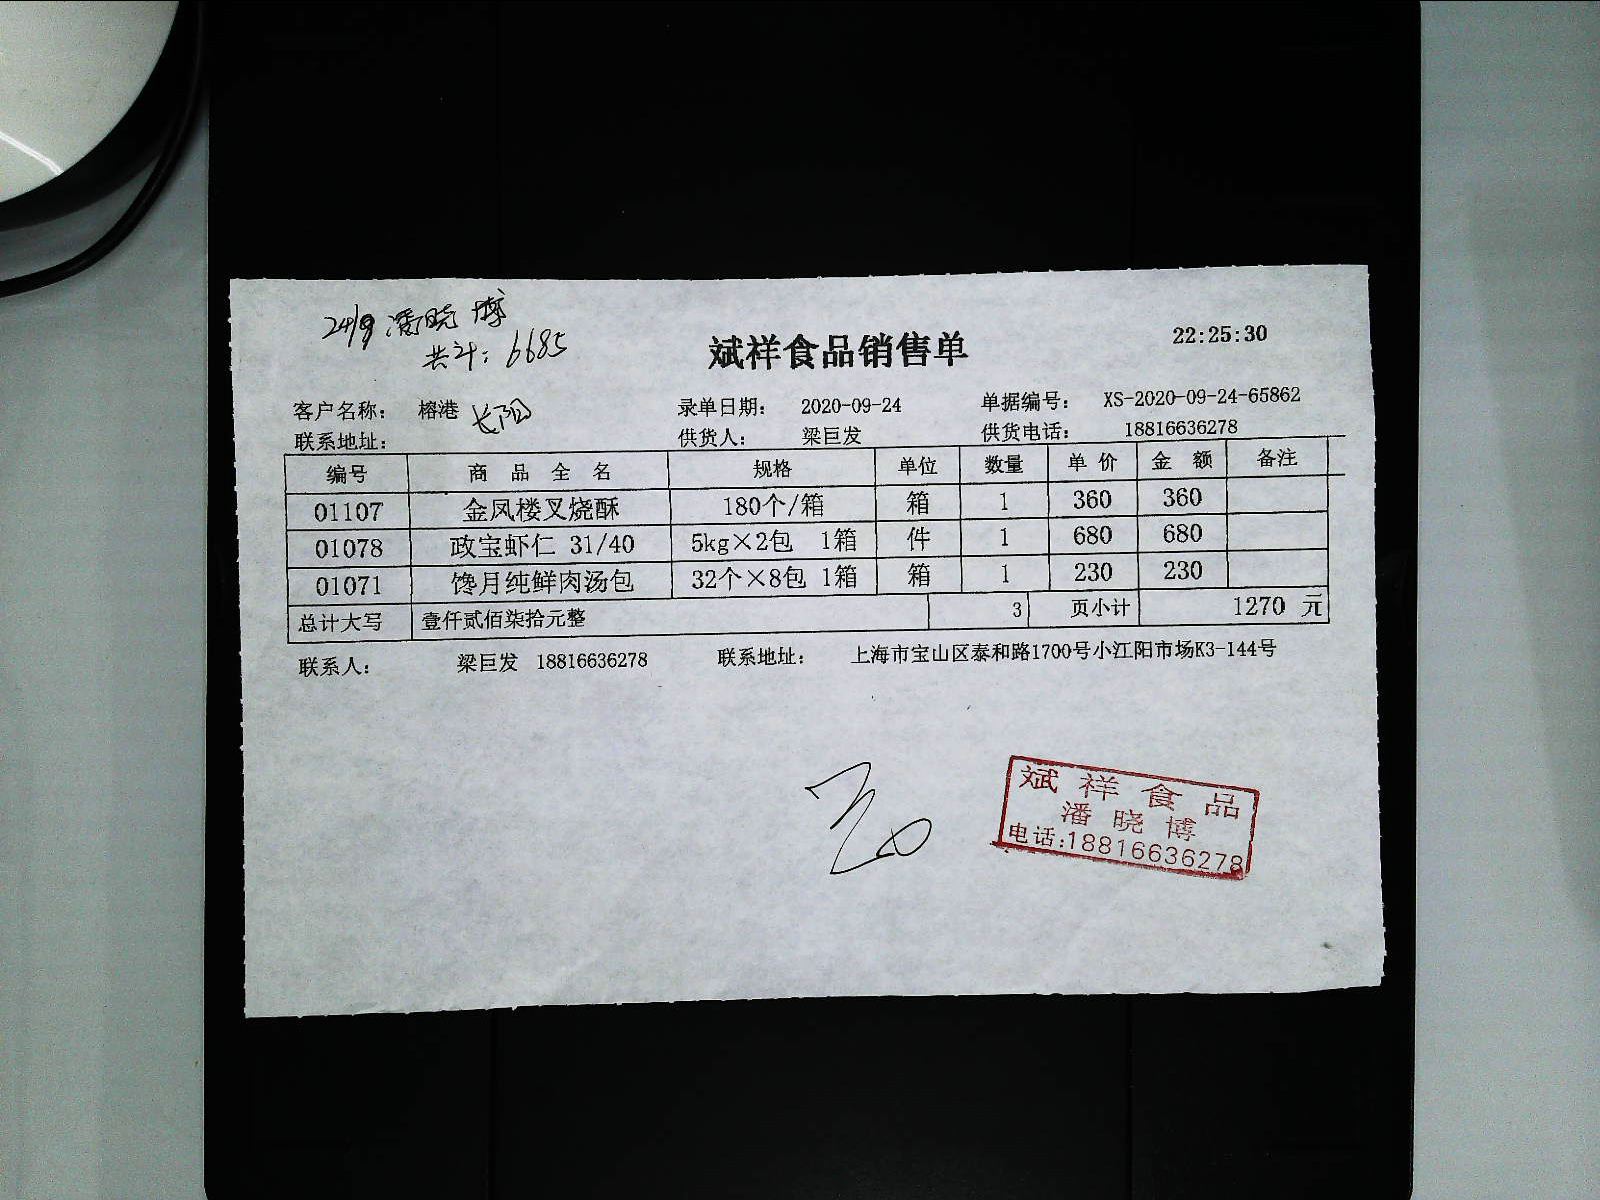 24/9 潘晓博
共计: 6685
斌祥食品销售单
22:25:30
客户名称： 榕港 长阳 录单日期： 2020-09-24 单据编号： XS-2020-09-24-65862
联系地址： 供货人： 梁巨发 供货电话： 18816636278
编号 商品全名 规格 单位 数量 单价 金额 备注
01107 金凤楼叉烧酥 180个/箱 箱 1 360 360
01078 政宝虾仁 31/40 5kg×2包 1箱 件 1 680 680
01071 馋月纯鲜肉汤包 32个×8包 1箱 箱 1 230 230
总计大写 壹仟贰佰柒拾元整 3 页小计 1270 元
联系人： 梁巨发 18816636278 联系地址： 上海市宝山区泰和路1700号小江阳市场K3-144号
斌祥食品
潘晓博
电话:18816636278